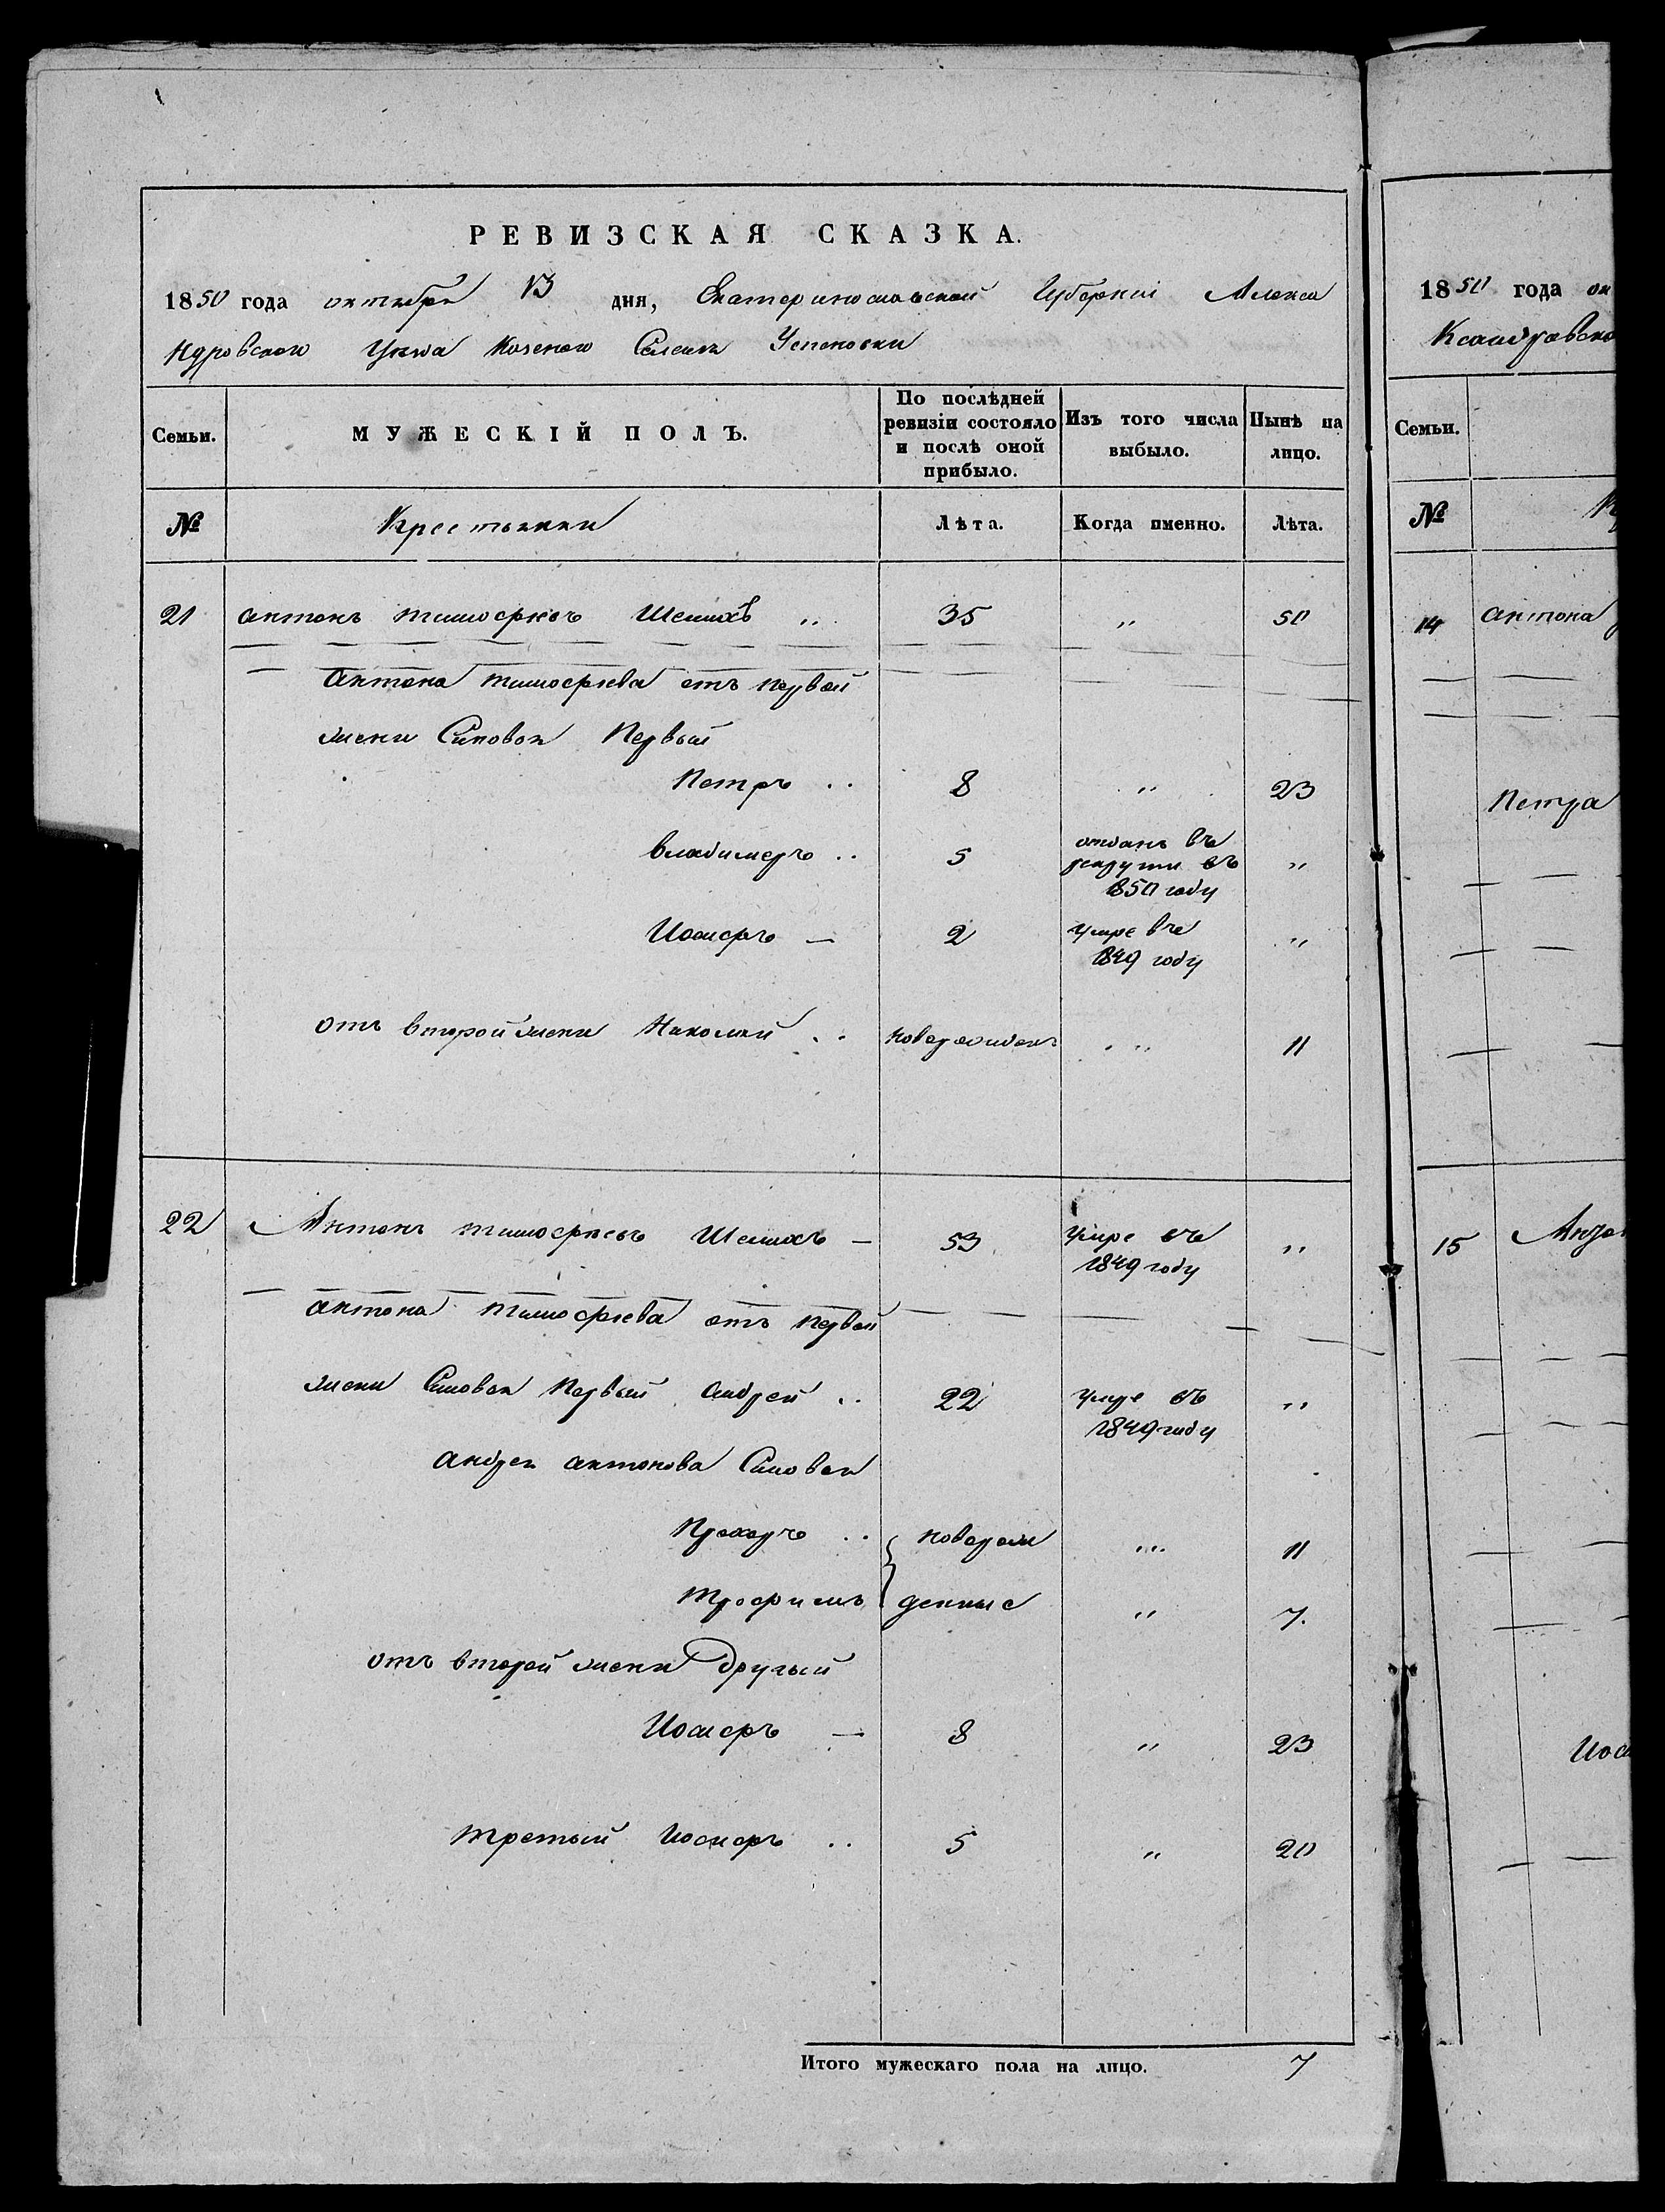 РЕВИЗСКАЯ СКАЗКА.
1850 года октября 13 дня, Екатеринославской Губерніи Алекса
ндровского Уезда Козеного Селенія Успеновки
Семьи. МУЖЕСКІЙ ПОЛЪ. По послѣдней ревизіи состояло и послѣ оной прибыло. Изъ того числа выбыло. Нынѣ на лицо.
№ Крестьяни Лѣта. Когда именно. Лѣта.
21 Антонъ тимофѣевъ 35 " 50
Антона тимофѣева отъ первой
жени Синовя Первый
Петръ .. 8 " 23
владимеръ .. 5 отданъ въ рекрути въ 1850 году "
Иосифъ — 2 умре въ 1849 году "
отъ второй жени Николай .. новорожденъ " 11
22 Антонъ тимофѣевъ 53 умре въ 1849 году "
антона тимофѣева отъ первой
жени Синовя Первый андрей .. 22 умре въ 1849 году "
андрея антонова Синовя
Прохоръ .. новорож " 11
Трофимъ денные " 7.
отъ второй жени другый
Иосифъ — 8 " 23
третый Иосифъ .. 5 " 20
Итого мужескаго пола на лицо. 7
1850 года ок
ксандровско
Семьи.
№
14 антона
Петра
15
Иос